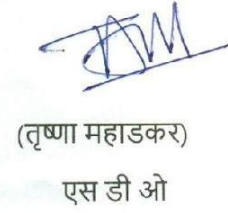 (तृष्णा महाडकर)
एस डी ओ